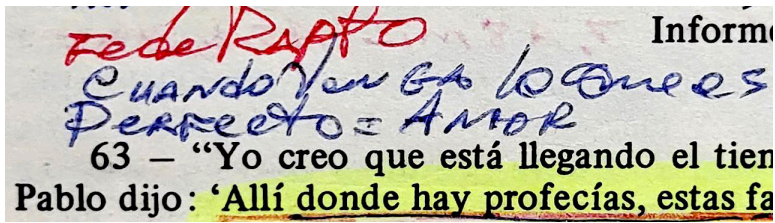 Informe
Fede RAPTO
CUANDO VENGA lo Que es
PERFECTO = AMOR
63 — “Yo creo que está llegando el tien
Pablo dijo: ‘Allí donde hay profecías, estas fa